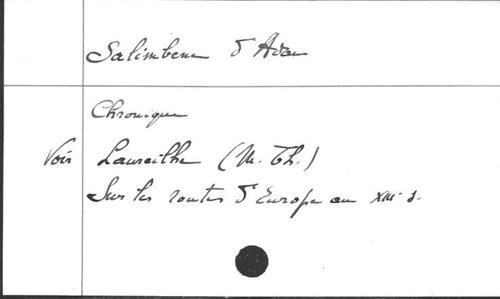 Salimbene d'Adam
Chronique
Voir Laureilhe (M. Th.)
Sur les routes d'Europe au XIIIe s.